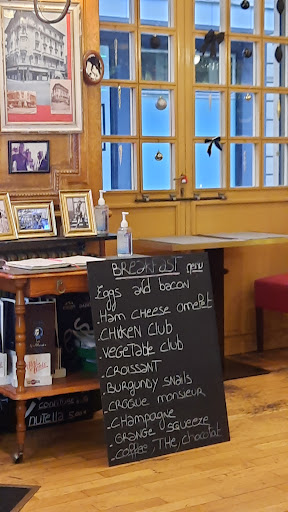 BREAKFAST menu
Eggs and bacon
.HAM CHEESE OMEPET
.CHIKEN CLUB
.VEGETABLE CLUB
.CROISSANT
BURGUNDY SNAILS
.CROQUE MONSIEUR
-CHAMPAGNE
-ORANGE SQUEEZE
-COFFEE, THE, chocolat
NUTELLA